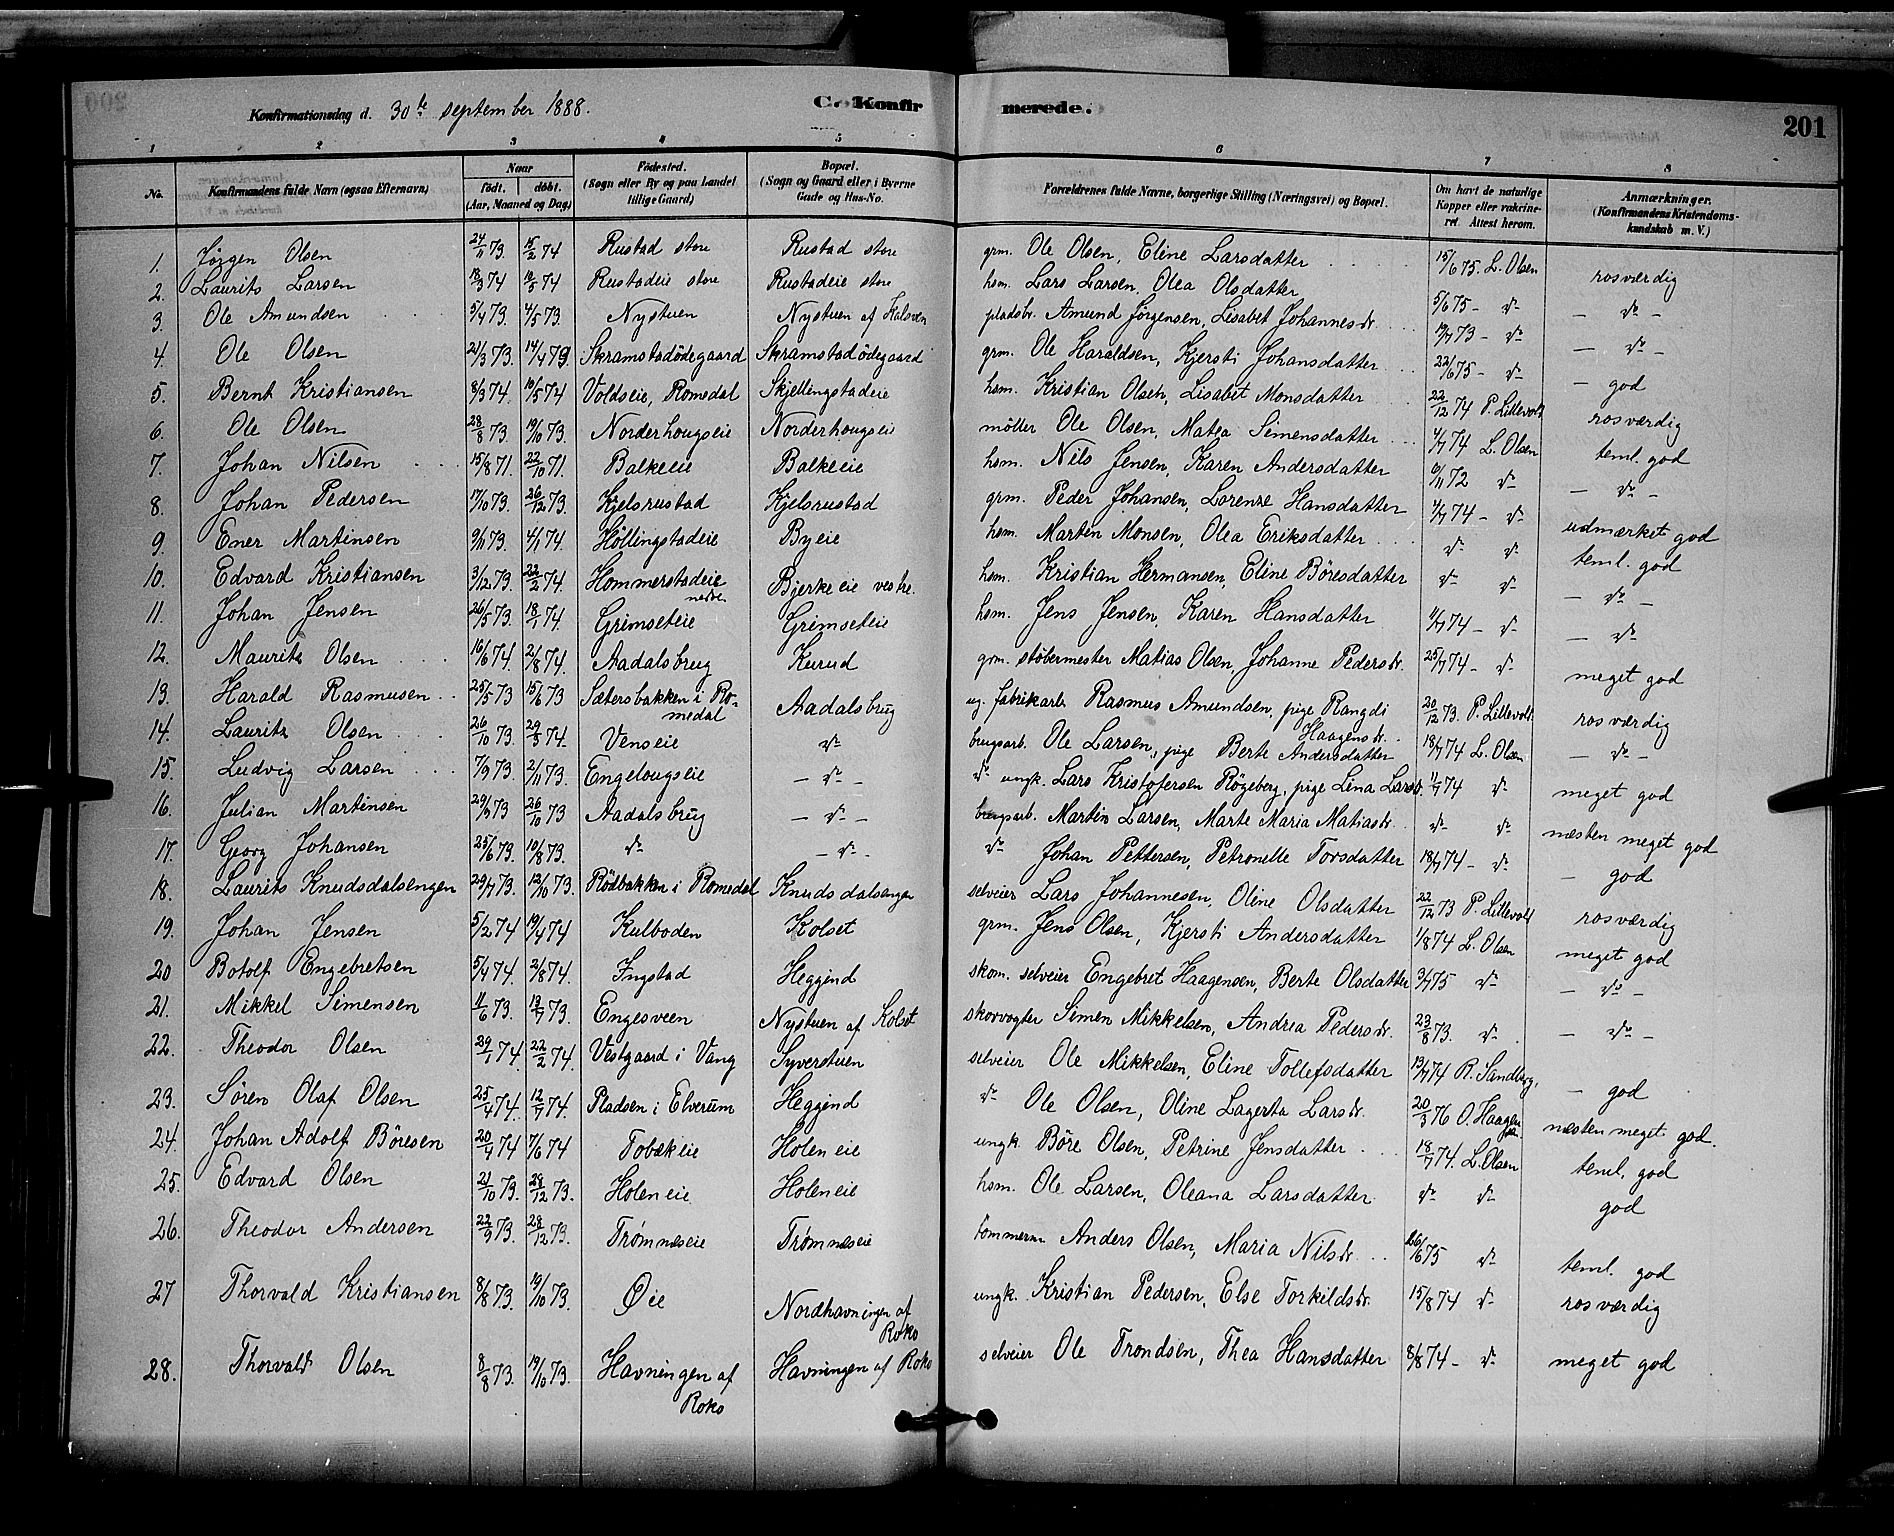 Konfirmationsdag d. 30te september 1888.
C. Konfirmerede.
201
1 2 3 4 5 6 7 8
No. | Konfirmandens fulde Navn (ogsaa Efternavn) | Naar født. døbt. (Aar, Maaned og Dag) | Fødested. (Sogn eller By og paa Landet tillige Gaard) | Bopæl. (Sogn og Gaard eller i Byerne Gade og Hus-No. | Forældrenes fulde Navne, borgerlige Stilling (Næringsvei) og Bopæl. | Om havt de naturlige Kopper eller vakcineret. Attest herom. | Anmærkninger. (Konfirmandens Kristendomskundskab m. V.)
1. Jörgen Olsen 24/11 73. 15/2 74 Rustad store Rustad store grm. Ole Olsen, Eline Larsdatter 15/6 75. L. Olsen rosværdig
2. Laurits Larsen 18/3 74 10/5 74 Rustadeie store Rustadeie store hsm. Lars Larsen, Olea Olsdatter 5/6 75 – do – do –
3. Ole Amundsen 5/4 73. 4/5 73. Nystuen Nystuen af Kolsen pladsbr. Amund Jörgensen, Lisabet Johannesdr. 19/7 73 – do – do –
4. Ole Olsen 21/3 73. 14/4 73 Skramstadödegaard Skramstadödegaard grm. Ole Haraldsen, Kjersti Johansdatter 22/6 75 – do – god
5. Bernt Kristiansen 8/3 74. 10/5 74 Voldseie, Romedal Skjellengstadeie hsm. Kristian Olsen, Lisabet Monsdatter 22/12 74 P. Lillevold rosværdig
6. Ole Olsen 28/8 73. 19/10 73. Norderhougseie Norderhougseie möller Ole Olsen, Matea Simensdatter 4/7 74 L. Olsen teml. god
7. Johan Nilsen 15/8 71. 22/10 71. Balkeeie Balkeeie hsm. Nils Jensen, Karen Andersdatter 6/11 72 do – do –
8. Johan Pedersen 17/10 73. 26/12 73. Kjelsrustad Kjelsrustad grm. Peder Johansen, Lorense Hansdatter 4/7 74 – do udmærket god
9. Ener Martinsen 9/11 73. 4/1 74. Höllingstadeie Byeie hsm. Martin Monsen, Olea Eriksdatter do do teml. god
10. Edvard Kristiansen 3/12 73. 22/2 74. Hommerstadeie nedre Bjerkeeie vestre. hsm. Kristian Hermansen, Eline Böresdatter do do – do –
11. Johan Jensen 26/5 73. 18/1 74. Grimseteie Grimseteie hsm. Jens Jensen, Karen Hansdatter 4/7 74 – do – do
12. Maurits Olsen 16/6 74. 2/8 74. Aadalsbrug Kurud grm. stöbermester Matias Olsen, Johanne Pedersdr. 25/7 74 – do meget god
13. Harald Rasmusen 25/5 73 15/6 73 Sætersbakken i Romedal Aadalsbrug ug. fabrikarb. Rasmus Amundsen, pige Rangdi Haagensdr. 20/12 73. P. Lillevold. rosværdig
14. Laurits Olsen 26/10 73. 29/3 74. Venseie do brugsarb. Ole Larsen, pige Berte Andersdatter 18/7 74 L. Olsen – do –
15. Ludvig Larsen 7/9 73. 2/11 73. Engelougseie – do – do ungk. Lars Kristofersen Rögeberg, pige Lina Larsd. 4/7 74 do meget god
16. Julian Martinsen 29/9 73 26/10 73 Aadalsbrug – do – brugsarb. Martin Larsen, Marte Maria Matiasdr. do do næsten meget god
17. Georg Johansen 25/6 73. 10/8 73. do – do – do Johan Pettersen, Petronelle Torsdatter 18/7 74 – do – god
18. Laurits Knudsdalsengen 29/7 73. 12/10 73. Rödbakken i Romedal Knudsdalsengen selveier Lars Johannesen, Oline Olsdatter 22/12 73 P. Lillevold rosværdig
19. Johan Jensen 5/2 74 19/4 74 Kulboden Kolset grm. Jens Olsen, Kjersti Andersdatter 1/8 74 L. Olsen meget god
20 Botolf Engebretsen 5/4 74. 2/8 74. Ingstad Heggend skom. selveier Engebret Haagensen, Berte Olsdatter 3/7 75 do – do –
21. Mikkel Simensen 11/6 73. 13/7 73. Engesveen Nystuen af Kolset skovvogter Simen Mikkelsen, Andrea Pedersdr. 23/8 73. do – do –
22. Theodor Olsen 29/1 74. 22/2 74. Vestgaard i Vang Syverstuen selveier Ole Mikkelsen, Eline Tollefsdatter 13/7 74 R. Sandberg, – god
23. Sören Olaf Olsen 25/4 74. 12/7 74. Pladsen i Elverum Heggend do Ole Olsen, Oline Lagerta Larsdr. 20/3 76 O. Haagensen næsten meget god.
24. Johan Adolf Böresen 20/4 74 7/6 74 Tobækeie Holeneie ungk. Böre Olsen, Petrine Jensdatter 18/7 74. L. Olsen teml. god
25. Edvard Olsen 21/10 73. 28/12 73. Holeneie Holeneie hsm. Ole Larsen, Oleana Larsdatter do do god
26. Theodor Andersen 22/9 73. 28/12 73. Trømnæseie Trømnæseie tömmerm Anders Olsen, Maria Nilsdr. 26/6 75 do teml. god
27 Thorvald Kristiansen 8/8 73. 19/10 73. Øie Nordhavningen af Roko ungk. Kristian Pedersen, Else Torkildsdr. 15/8 74 do rosværdig
28. Thorvald Olsen 8/8 73. 19/10 73. Havningen af Roko Havningen af Roko selveier Ole Trondsen, Thea Hansdatter 8/8 74 – do meget god